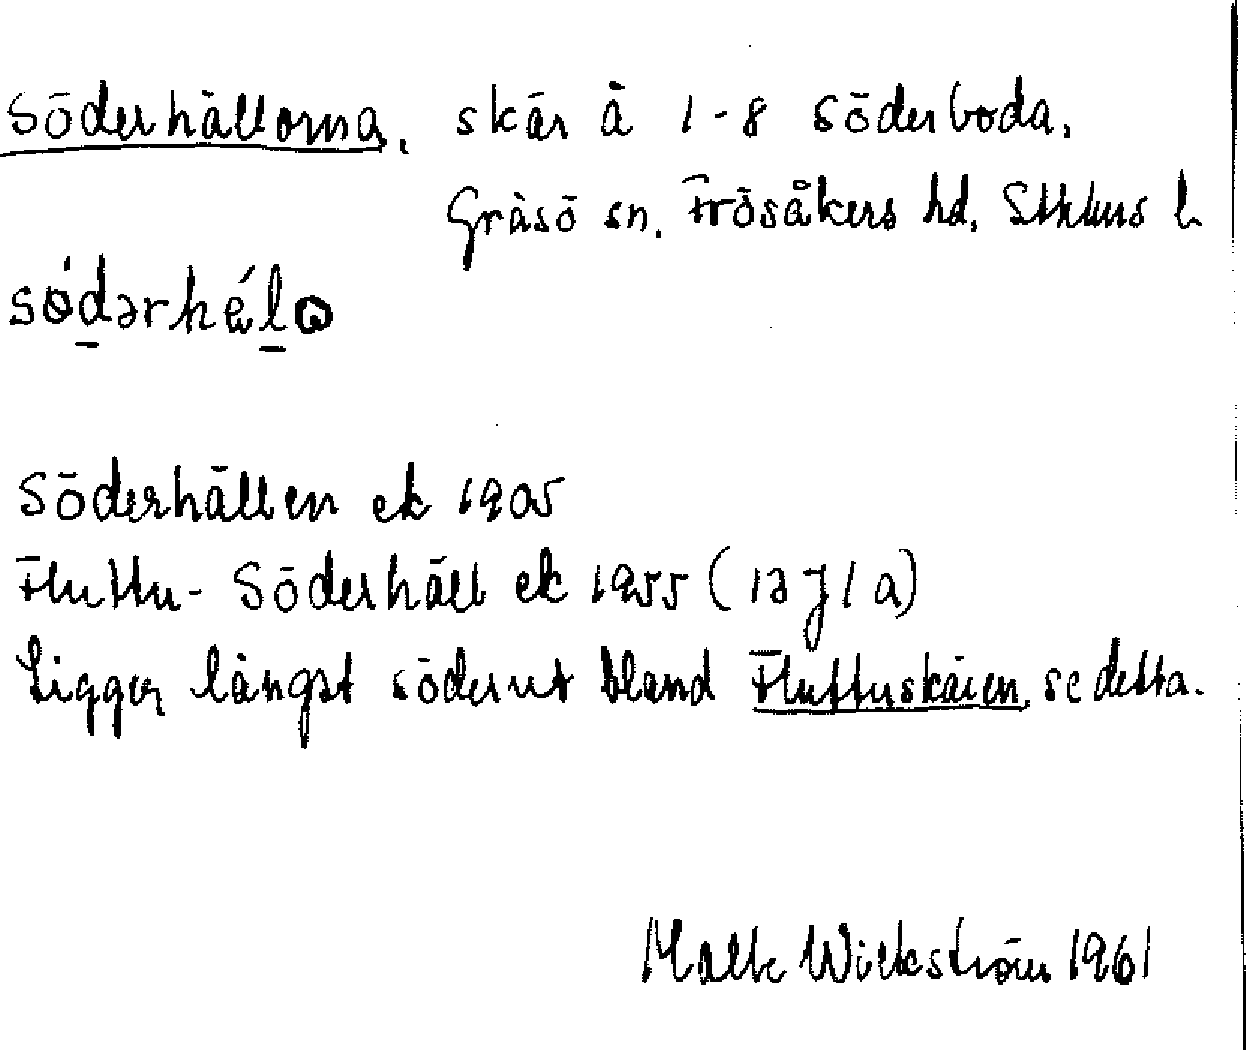 Söderhällorna, skär å 1-8 Söderboda,
Gräsö sn. Frösåkers hd, Sthlms l
Söderhällen ek 1905
Fluttu- Söderhäll ek 1955 (12 J 1 a)
Ligger längst söderut bland Fluttuskären, se detta.
Malte Wickström 1961